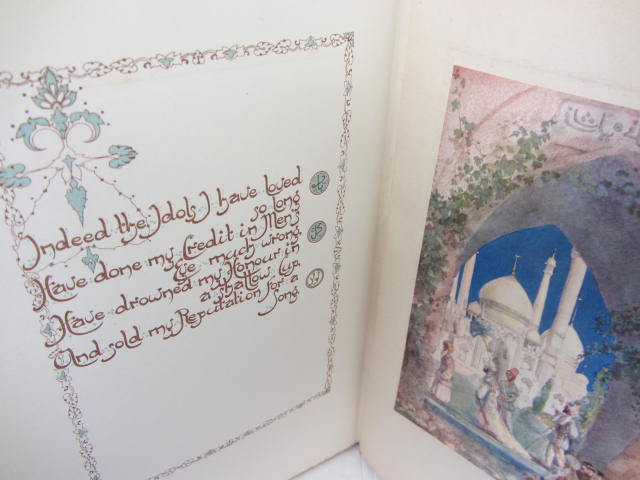 Indeed the Idols I have loved
so long
Have done my Credit in Men's
Eye much wrong:
Have drowned my Honour in
a shallow Cup,
And sold my Reputation for a
Song.